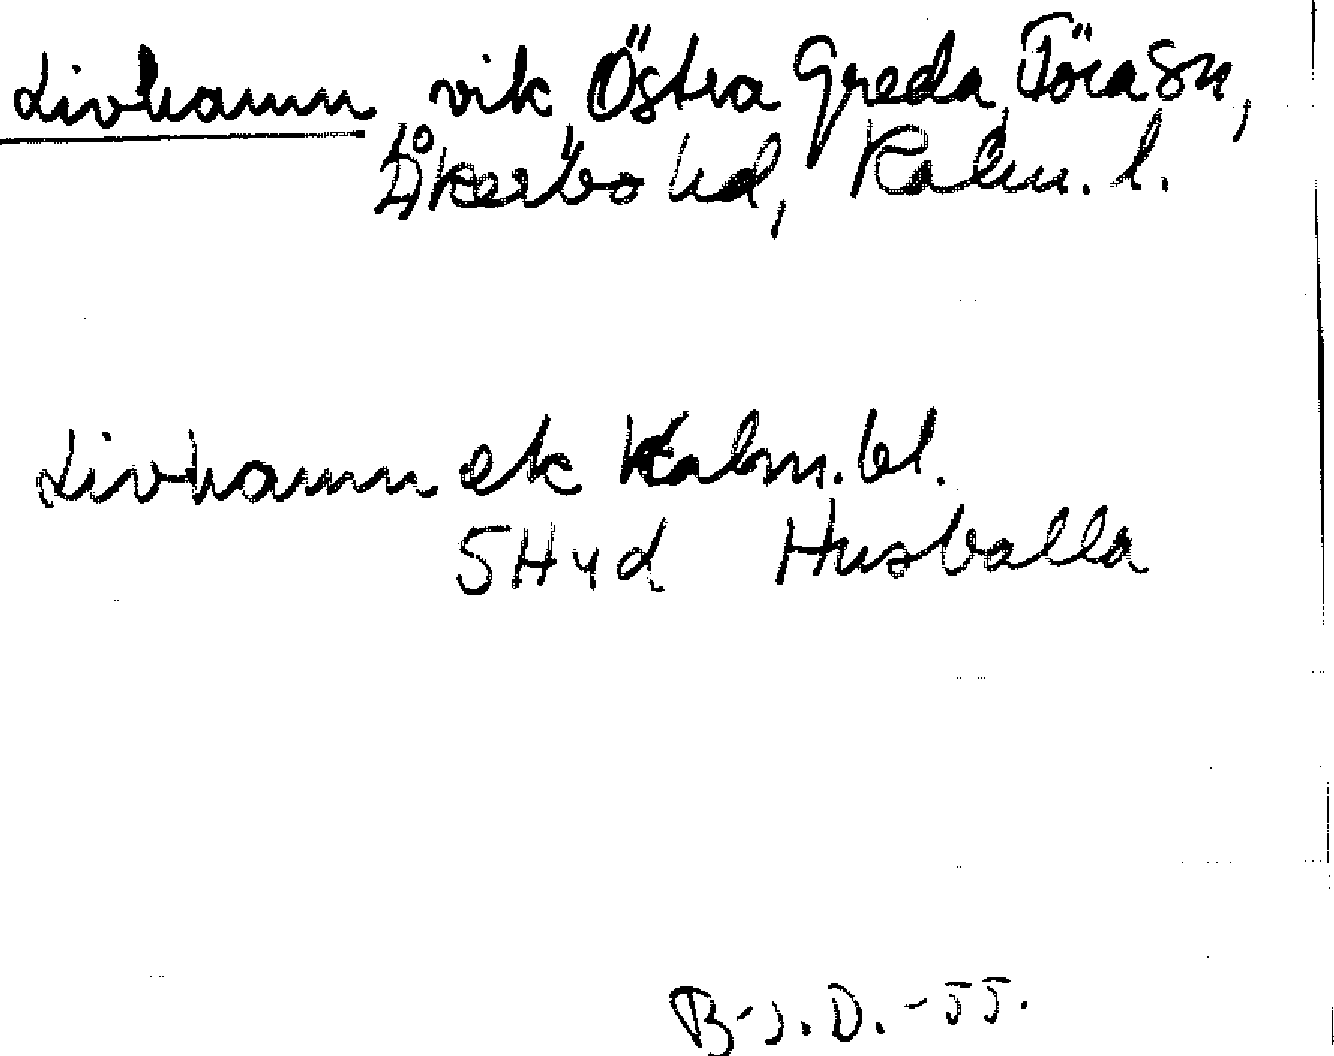 Livhamn vik Östra Greda Föra Sn,
Åkerbo hd, Kalm. l.
Livhamn ek Kalm. bl.
5H4d Husvalla
B-J.D. -55.